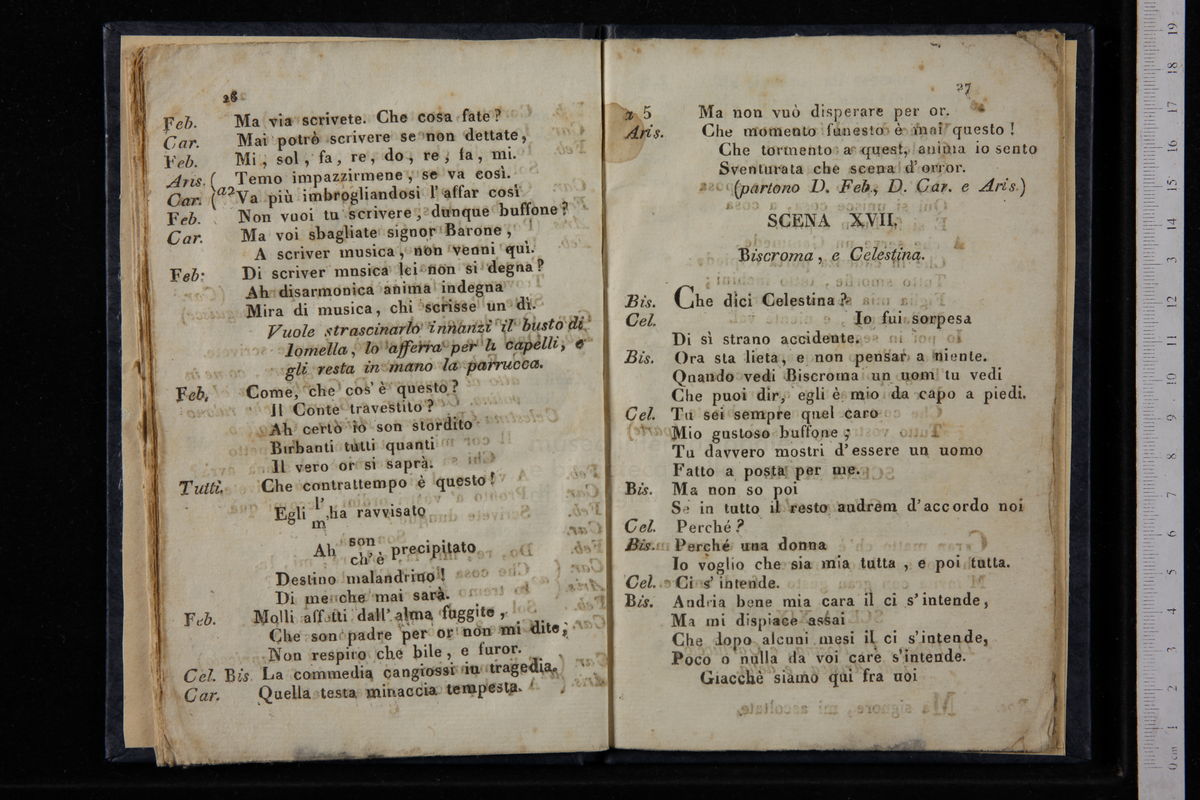 26
Feb. Ma via scrivete. Che cosa fate?
Car. Mai potrò scrivere se non dettate,
Feb. Mi, sol, fa, re, do, re, fa, mi.
Aris. ( Temo impazzirmene, se va così.
Car. ( a2 Va più imbrogliandosi l'affar così
Feb. Non vuoi tu scrivere, dunque buffone?
Car. Ma voi sbagliate signor Barone,
A scriver musica, non venni quì.
Feb: Di scriver musica lei non si degna?
Ah disarmonica anima indegna
Mira di musica, chi scrisse un dì.
Vuole strascinarlo innanzi il busto di
Iomella, lo afferra per li capelli, e
gli resta in mano la parrucca.
Feb. Come, che cos' è questo?
Il Conte travestito?
Ah certo io son stordito
Birbanti tutti quanti
Il vero or si saprà.
Tutti. Che contrattempo è questo!
Egli l' m' ha ravvisato
Ah son ch' è precipitato
Destino malandrino!
Di me che mai sarà.
Feb. Molli affetti dall' alma fuggite,
Che son padre per or non mi dite,
Non respiro che bile, e furor.
Cel. Bis. La commedia cangiossi in tragedia.
Car. Quella testa minaccia tempesta.
27
a 5 Ma non vuò disperare per or.
Aris. Che momento funesto è mai questo!
Che tormento a quest, anima io sento
Sventurata che scena d'orror.
(partono D. Feb., D. Car. e Aris.)
SCENA XVII,
Biscroma, e Celestina.
Bis. Che dici Celestina?
Cel. Io fui sorpesa
Di sì strano accidente.
Bis. Ora sta lieta, e non pensar a niente.
Quando vedi Biscroma un uom tu vedi
Che puoi dir, egli è mio da capo a piedi.
Cel. Tu sei sempre quel caro
Mio gustoso buffone;
Tu davvero mostri d'essere un uomo
Fatto a posta per me.
Bis. Ma non so poi
Se in tutto il resto audrem d'accordo noi
Cel. Perché?
Bis. Perché una donna
Io voglio che sia mia tutta, e poi tutta.
Cel. Ci s' intende.
Bis. Andria bene mia cara il ci s'intende,
Ma mi dispiace assai
Che dopo alcuni mesi il ci s'intende,
Poco o nulla da voi care s'intende.
Giacchè siamo qui fra noi